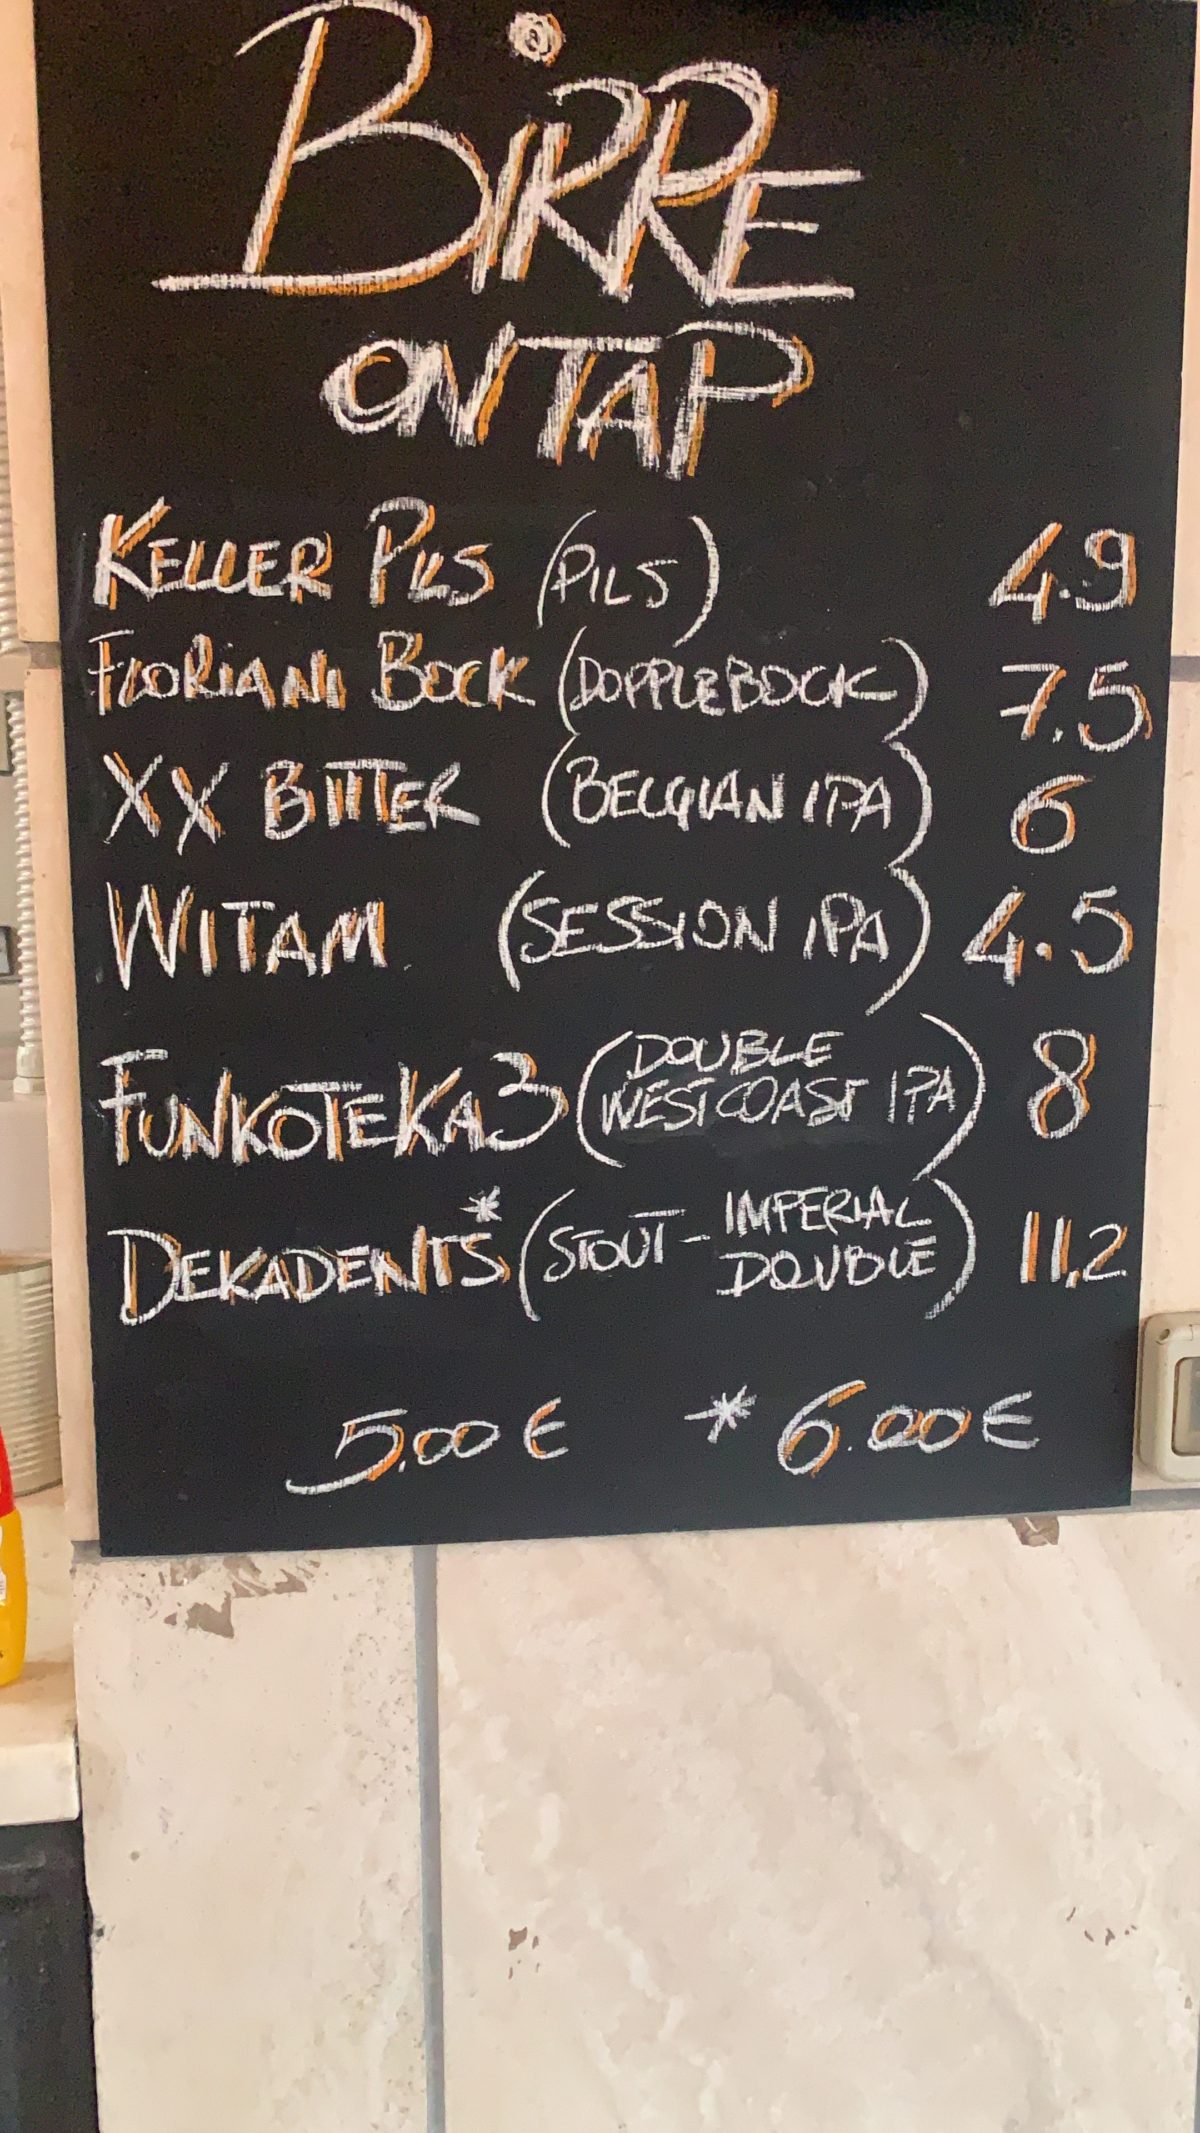 BiRRE
ON TAP
KELLER PILS (PILS) 4.9
FLORiANi BOCK (DOPPLEBOCK) 7.5
XX BITTER (BELGIAN IPA) 6
WITAM (SESSION IPA) 4.5
FUNKOTEKA3 (DOUBLE WESTCOAST IPA) 8
DEKADENTS* (STOUT - IMPERIAL DOUBLE) 11,2
5,00 € * 6.00 €